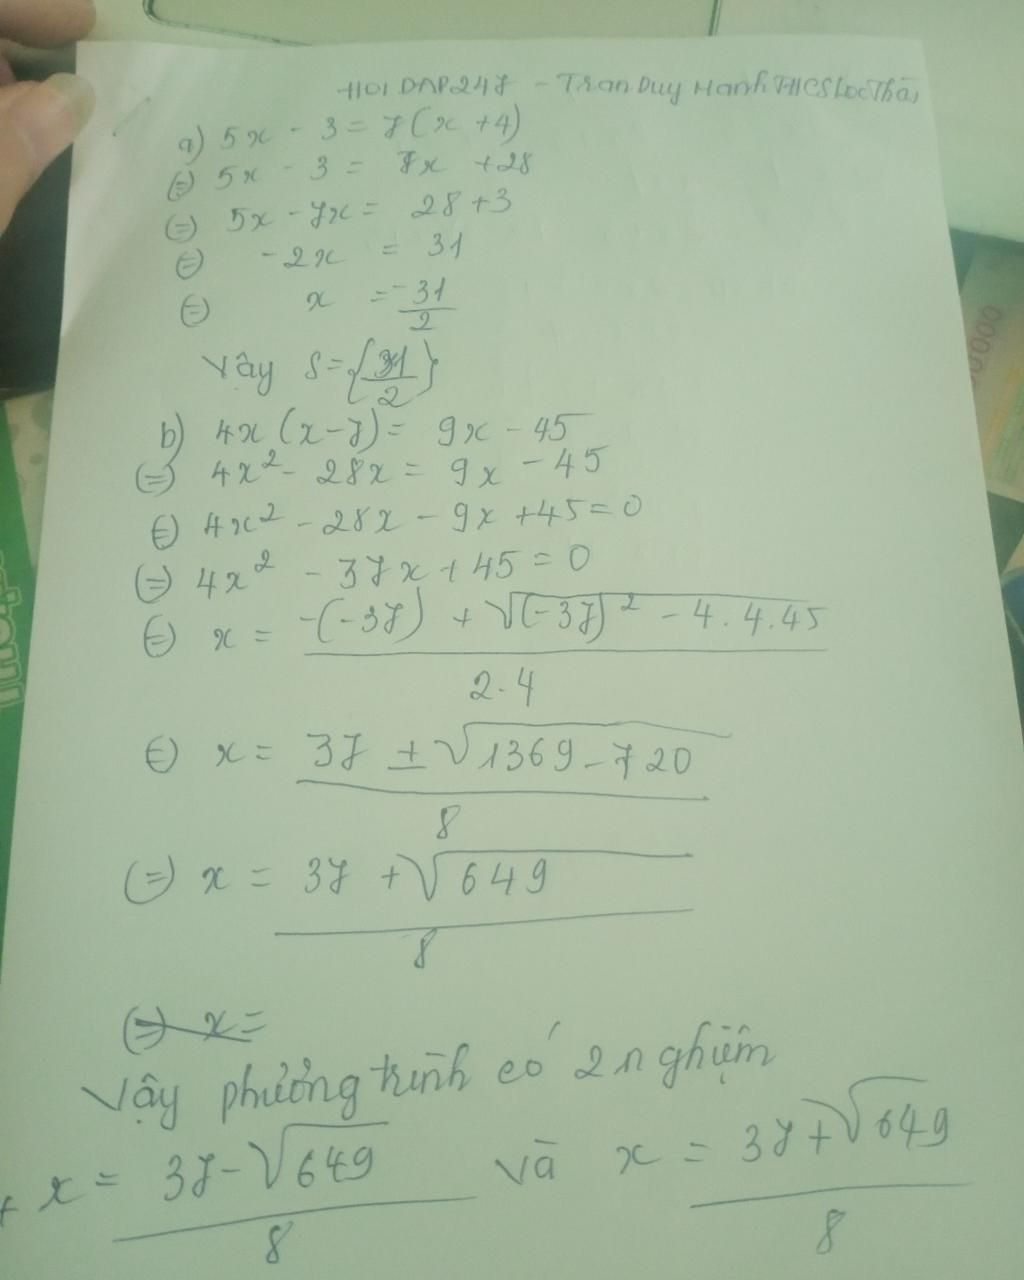 HOIDAP247 - Tran Duy Hanh THCS Loc Thái
a) 5x - 3 = 7(x + 4)
(=) 5x - 3 = 7x + 28
(=) 5x - 7x = 28 + 3
(=) -2x = 31
(=) x = -31/2
Vậy S = {31/2}
b) 4x(x - 7) = 9x - 45
(=) 4x² - 28x = 9x - 45
(=) 4x² - 28x - 9x + 45 = 0
(=) 4x² - 37x + 45 = 0
(=) x = (-(-37) + √((-37)² - 4.4.45))/(2.4)
(=) x = (37 ± √(1369 - 720))/8
(=) x = (37 + √649)/8
(=) x =
Vậy phương trình có 2 nghiệm
+ x = (37 - √649)/8 và x = (37 + √649)/8